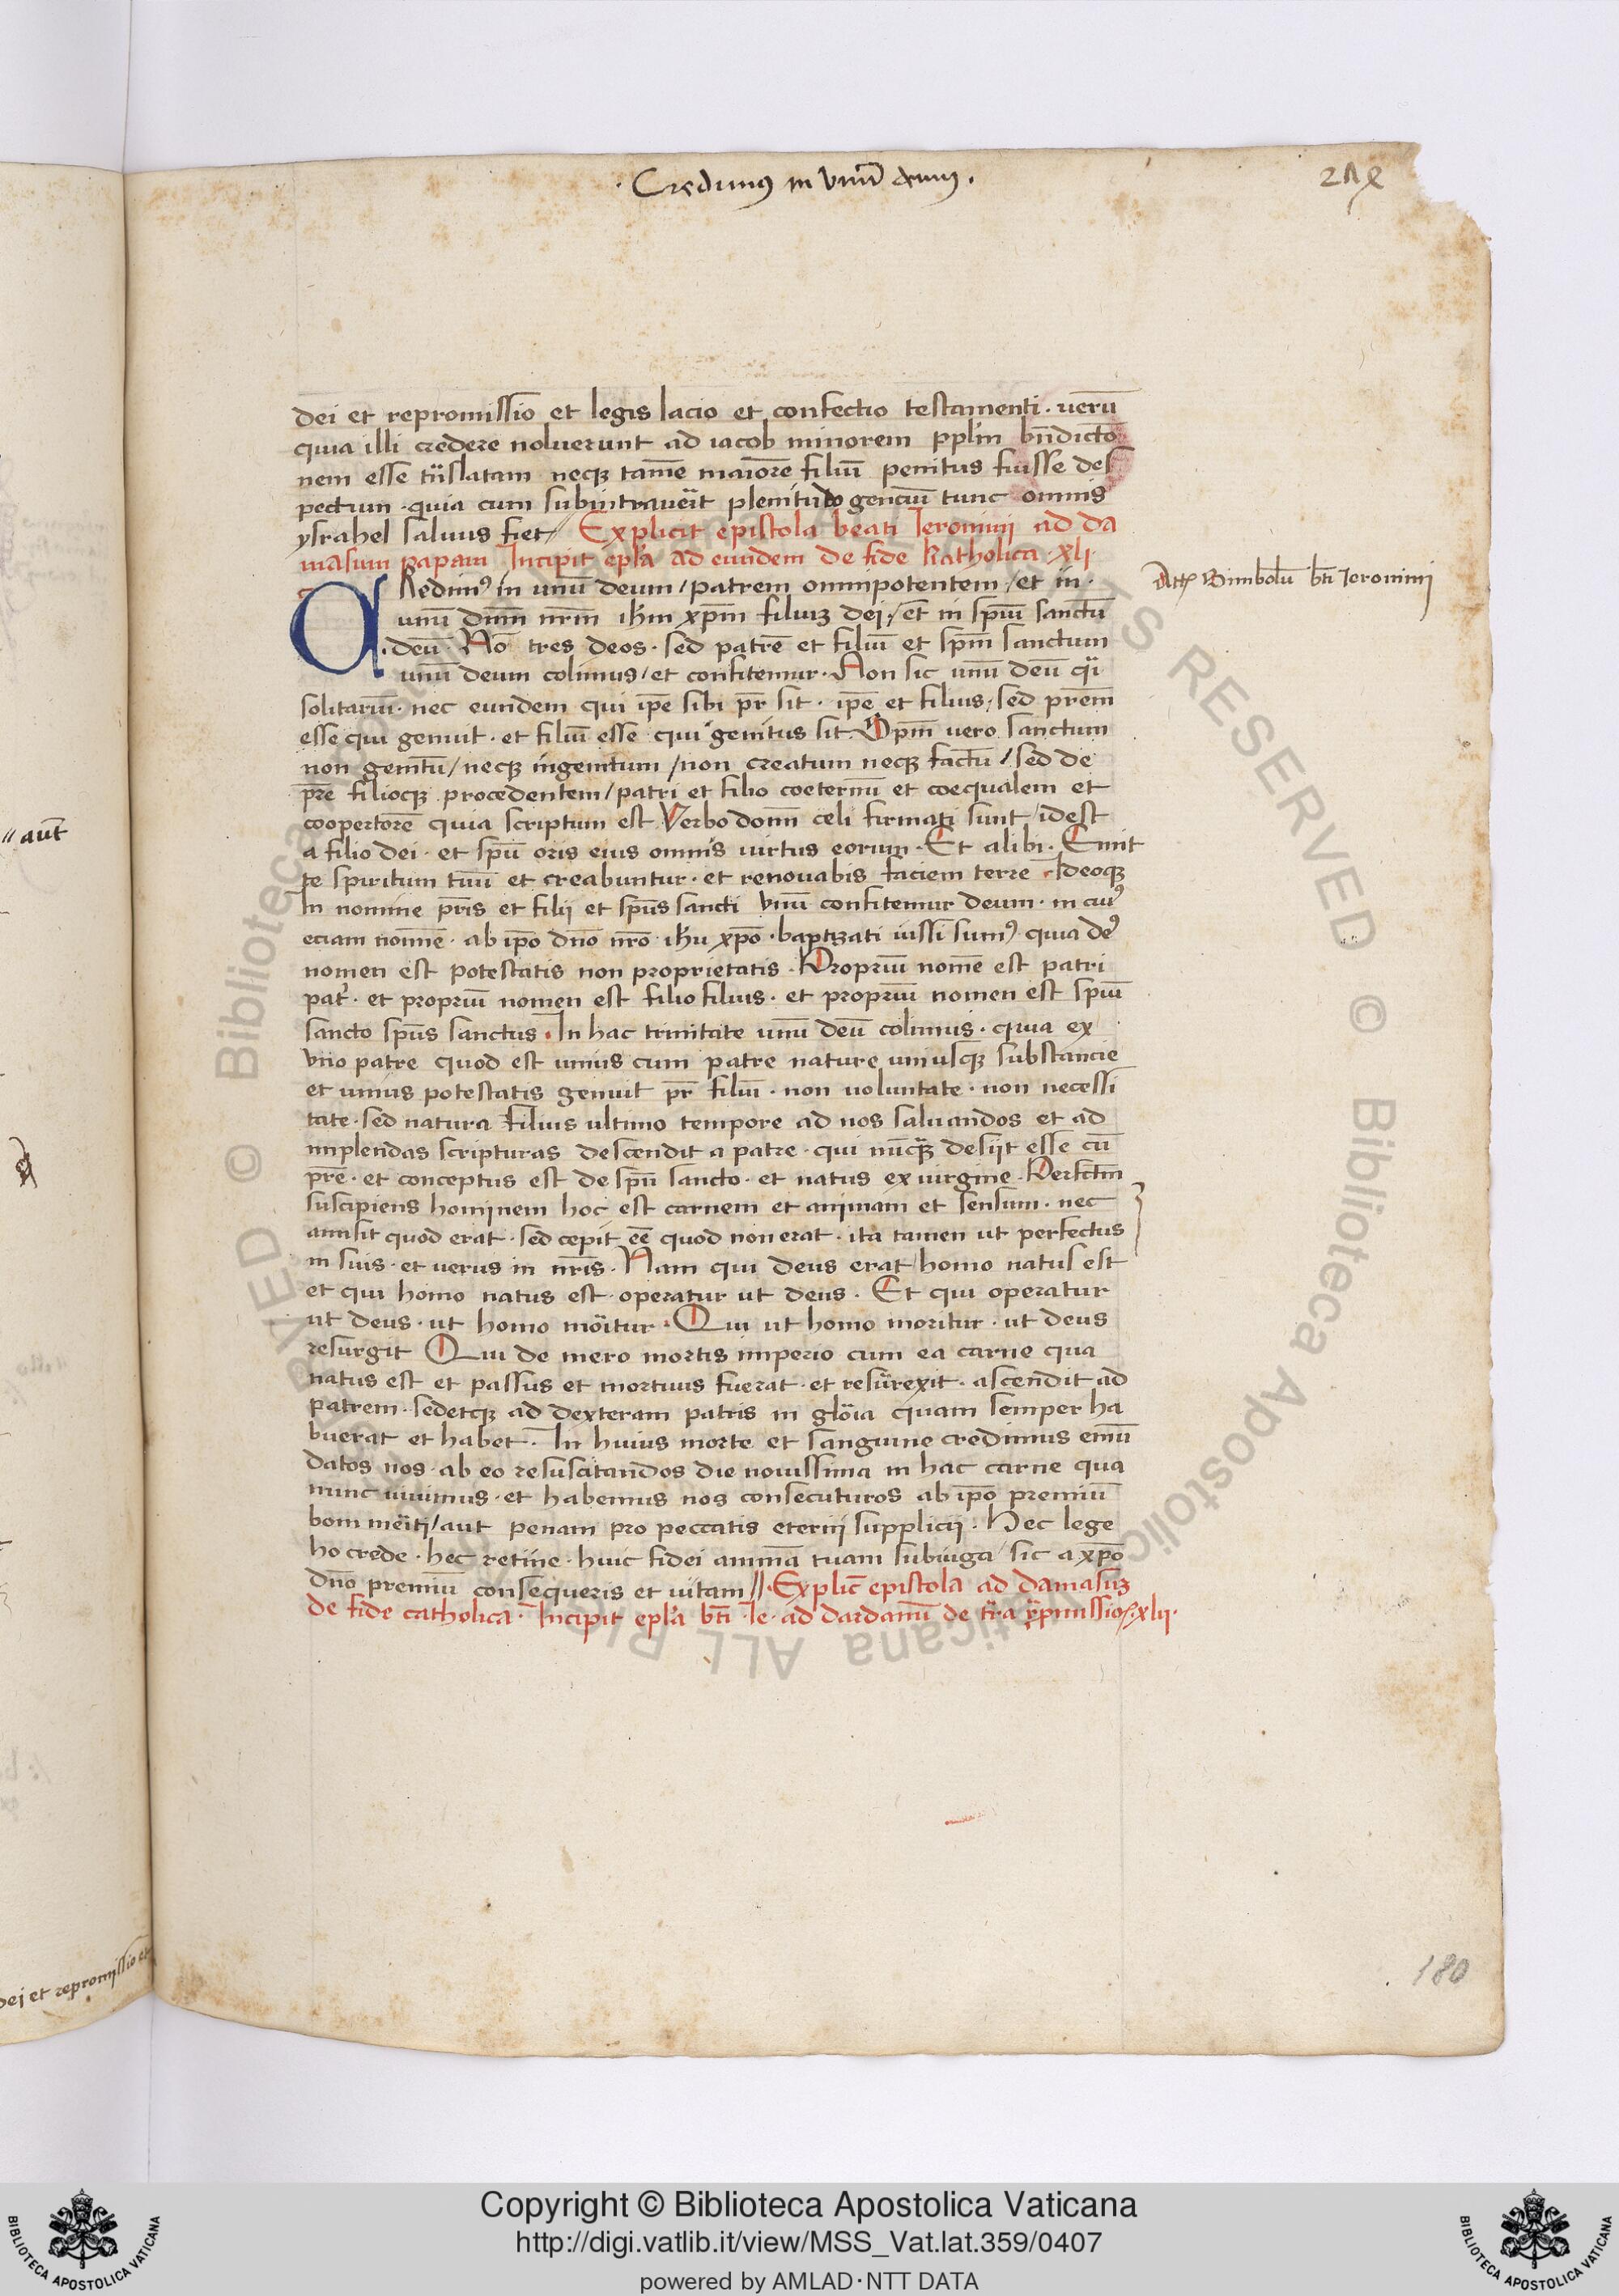 · Credimus in vnū deum ·
dei et repromissio et legis lacio et confectio testamenti · uerū
quia illi credere noluerunt ad iacob minorem pplm bn̄dictō
nem esse tn̄slatam neqȝ tamē maiorē filiū penitus fuisse des
pectum · quia cum subintrauerit plenitudo genciū tunc omnis
ysrahel saluus fiet // Explicit epistola beati Ieronimi ad da
masum papam Incipit epl̄a ad eundem de fide Katholica · xli ·
Redimꝰ in unū deum / patrem omnipotentem / et in ·
Attē Simbolū bt̄i Ieronimi
unū dn̄m nr̄m ih̄m xp̄m filiuȝ dei / et in sp̄m sanctū
· deū · No tres deos · sed patrē et filiū et sp̄m sanctum
unū deum colimus / et confitemur · Non sic unū deū q̄i
solitariū · nec eundem qui ip̄e sibi pr̄ sit · ip̄e et filius / sed prem̄
esse qui genuit · et filiū esse qui genitus sit Sp̄m uero sanctum
non genitū / neqȝ ingenitum / non creatum neqȝ factū / sed de
pr̄e filioqȝ procedentem / patri et filio coeternū et coequalem et
coopertorē quia scriptum est Verbo domī celi firmati sunt / idest
a filio dei · et sp̄u oris eius omnis uirtus eorum · Et alibi · Emit
te spiritum tuū et creabuntur · et renouabis faciem terre · Ideoqȝ
In nomine pr̄is et filij et sp̄us sancti vnū confitemur deum · in cuiꝰ
eciam nomē · ab ip̄o dn̄o nr̄o ih̄u xp̄o · baptzati iussi sumꝰ quia deꝰ
nomen est potestatis non proprietatis · Propriū nomē est patri
pat̄ · et propriū nomen est filio filius · et propriū nomen est spiū
sancto sp̄us sanctus · In hac trinitate unū deū colimus · quia ex
vno patre quod est unius cum patre nature uniusqȝ substancie
et unius potestatis genuit pr̄ filiū · non uoluntate · non necessi
tate · sed natura filius ultimo tempore ad nos saluandos et ad
implendas scripturas descendit a patre · qui nūqȝ desijt esse cū
pr̄e · et conceptus est de sp̄u sancto · et natus ex uirgine · Perfctm̄
suscipiens hominem hoc est carnem et animam et sensum · nec
amisit quod erat · sed cepit eē quod non erat · ita tamen ut perfectus
in suis · et uerus in nr̄is · Nam qui deus erat homo natus est
et qui homo natus est · operatur ut deus · Et qui operatur
ut deus · ut homo moritur · Qui ut homo moritur · ut deus
resurgit Qui de mero mortis imperio cum ea carne qua
natus est et passus et mortuus fuerat · et resurrexit · ascendit ad
patrem · sedetqȝ ad dexteram patris in gloria quam semper ha
buerat et habet · In huius morte et sanguine credimus emū
datos nos · ab eo resuscitandos die nouissima in hac carne qua
nunc uiuimus · et habemus nos consecuturos ab ip̄o premiū
boni meriti / aut penam pro peccatis eterni supplicij · Hec lege
ho crede · hec retine · huic fidei animā tuam subiuga / sic a xp̄o
dn̄o premiū consequeris et uitam // · Explic̄ epistola ad damasuȝ
de fide catholica · Incipit epl̄a bt̄i Ie · ad dardanū de t̄ra rep̄missiōis · xlij ·
180
// aut̄
dei et repromissio et
Copyright © Biblioteca Apostolica Vaticana
http://digi.vatlib.it/view/MSS_Vat.lat.359/0407
powered by AMLAD·NTT DATA
BIBLIOTECA APOSTOLICA VATICANA
BIBLIOTECA APOSTOLICA VATICANA